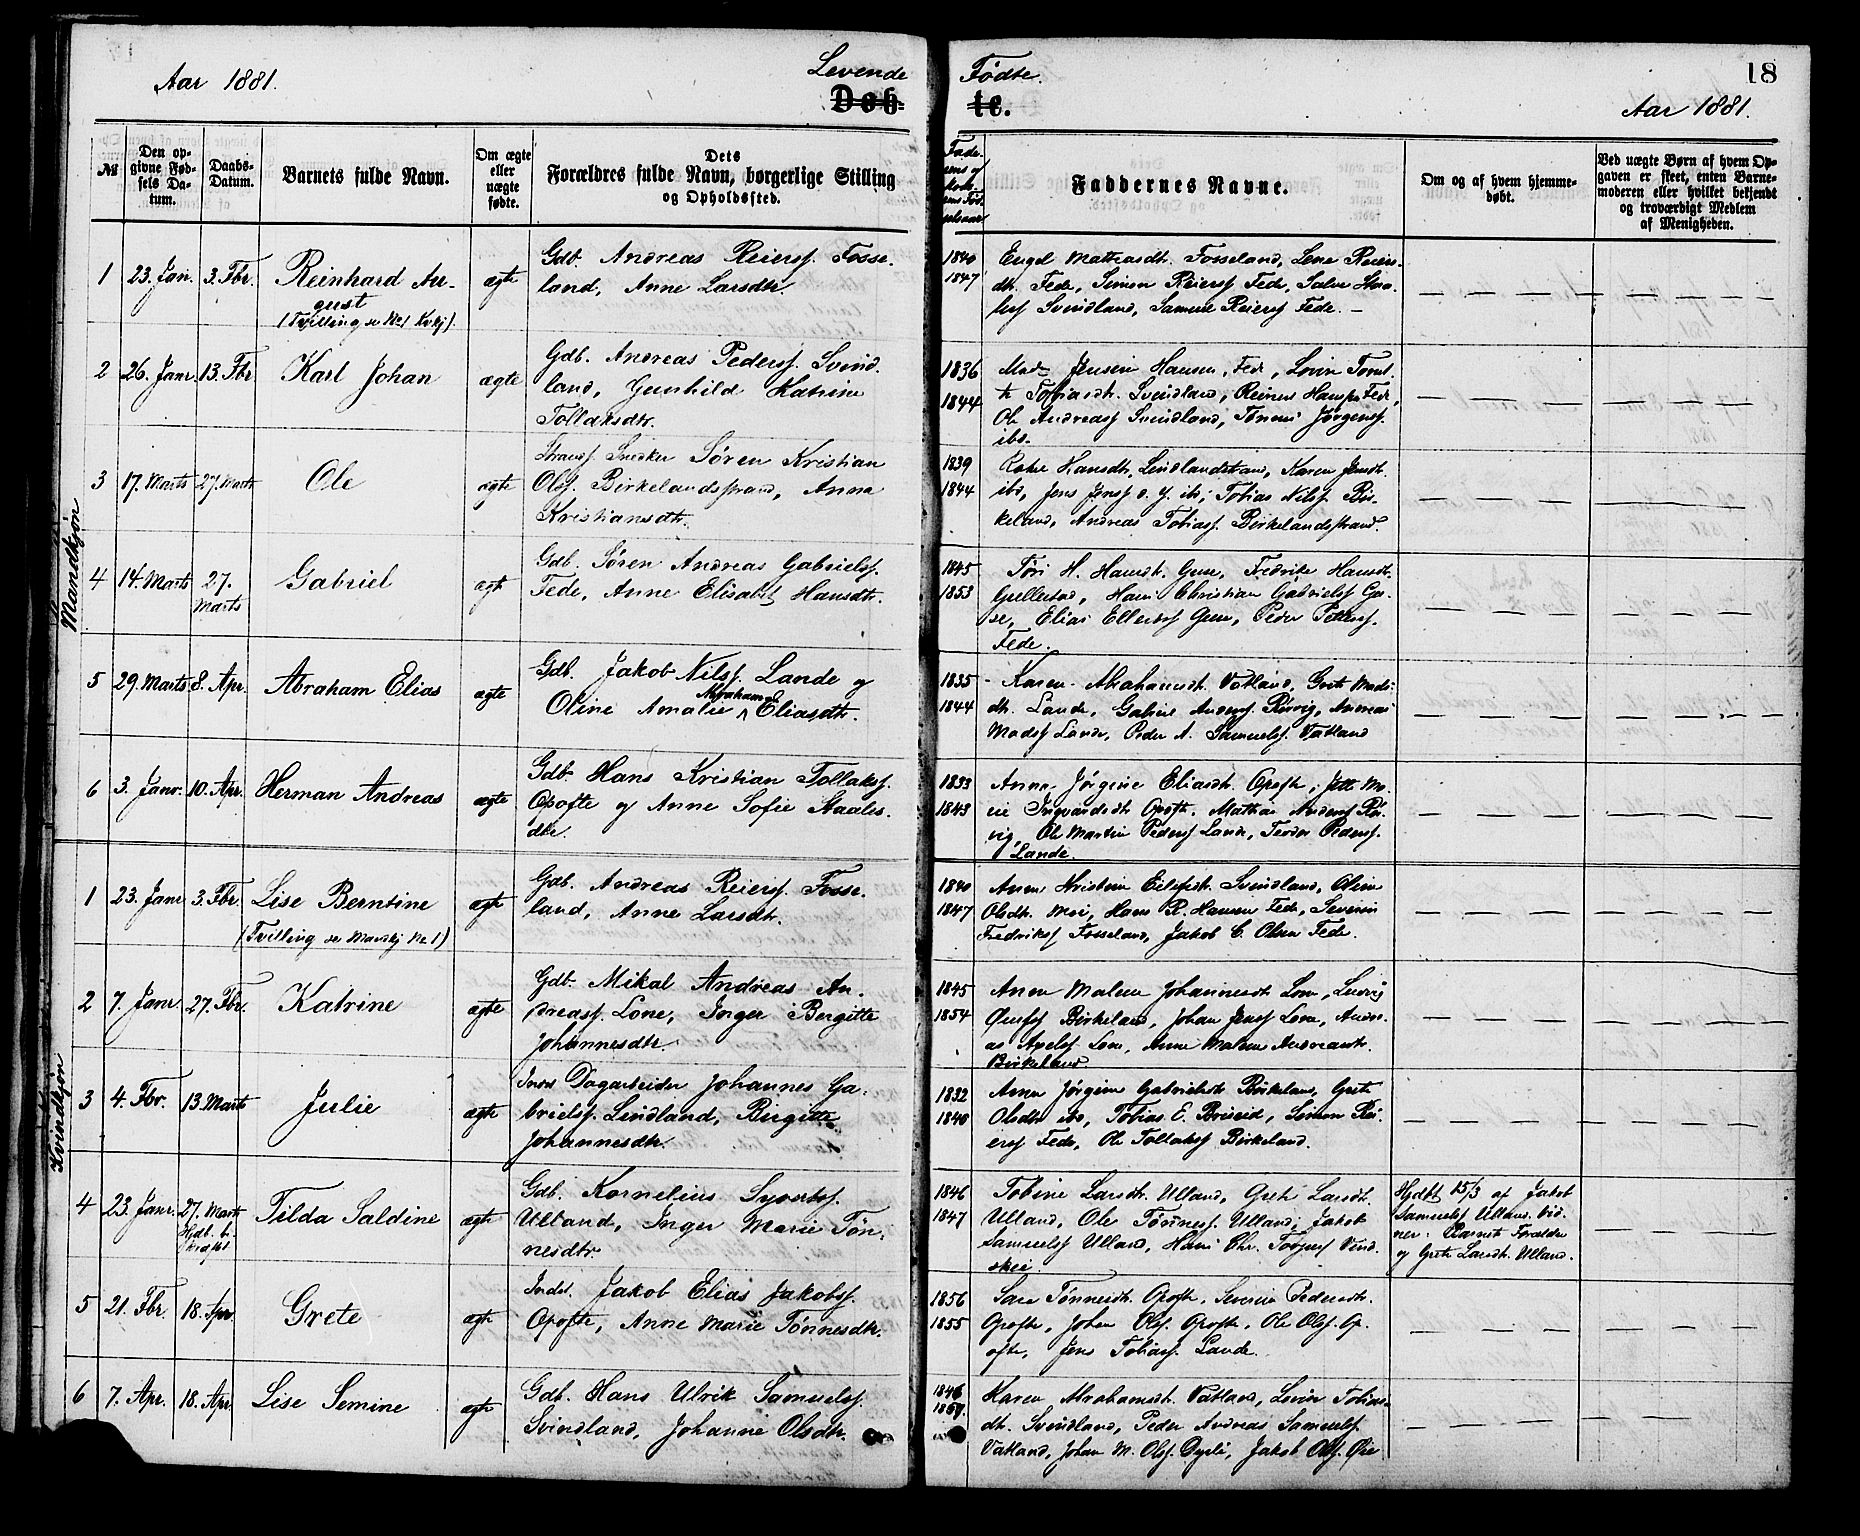 Aar 1881.
Levende Fødte.
18
Daab-
te.
Aar 1881.
№
Den op-
givne Fød-
sels Da-
tum.
Daabs-
Datum.
Barnets fulde Navn.
Om ægte
eller
uægte
fødte.
Dets
Forældres fulde Navn, borgerlige Stilling
og Opholdssted.
Faddernes Navne.
Om og af hvem hjemme-
døbt.
Ved uægte Børn af hvem Op-
gaven er skeet, enten Barne-
moderen eller hvilket bekjendt
og troværdigt Medlem
af Menigheden.
Mandkjøn
1 23. Jan. 3. Fbr. Reinhard Au-
gust
(Tvilling se No 1 Kvkj).
ægte
Gdb. Andreas Reiersf. Fosse-
land, Anne Larsdtr.
1840
1847
Engel Mathiasdtr. Fosseland, Lene Reiers-
dtr. Fede, Simon Reiersf. Fede, Salve Staa-
lesf Svindland, Samuel Reiersf Fede. —
2 26. Janr. 13. Fbr. Karl Johan
ægte
Gdb. Andreas Pedersf. Svind-
land, Gunhild Katrine
Tollaksdtr.
1836
1844
Jensine Hansen, Fede, Lovise
Tobiasdtr. Svindland, Reiner Hansen Fede,
Ole Andreasf Svindland, Tønnes Jørgensf.
ibd.
3 17. Marts 27. Marts Ole
ægte
Strandf. Snedker Søren Kristian
Olsf. Birkelandsstrand, Anna
Kristiansdtr.
1839
1844
Hansdtr. Lindlandstrand, Karen Jensdtr.
ibd, Jens Jensf o. g. ibd, Tobias Nilsf Bir-
keland, Andreas Tobiasf. Birkelandsstrand.
4 14. Marts 27.
Marts
Gabriel
ægte
Gdb. Søren Andreas Gabrielsf.
Fede, Anne Elisabet Hansdtr.
1845
1853
Tori H. Hansdtr. Guse, Fredrike Hansdtr.
Gullestad, Hans Christian Gabrielsf Gu-
se, Elias Ellertsf Guse, Peder Pettersf.
Fede.
5 29. Marts 8. Apr. Abraham Elias
ægte
Gdb. Jakob Nilsf. Lande og
Oline Amalie Abraham Eliasdtr.
1835
1844
Karen Abrahamsdtr. Vatland, Grete Mads-
dtr. Lande, Gabriel Andersf. Rørvig, Andreas
Madsf Lande, Peder A. Samuelsf. Vatland
6 3. Janr. 10. Apr. Herman Andreas
ægte
Gdb. Hans Kristian Tollaksf.
Opofte og Anne Sofie Staales-
dtr.
1833
1843
Anna Jørgine Eliasdtr. Opofte, Jette Ma-
rie Ingvardsdtr. Opofte, Mathias Andersf Rør-
vig, Ole Martin Pedersf Lande, Teodor Pedersf.
Lande.
Kvindkjøn
1 23. Janr 3. Fbr. Lise Berntine
(Tvilling se Mandkj No 1)
ægte
Gdb. Andreas Reiersf. Fosse-
land, Anne Larsdtr.
1840
1847
Anne Kristine Eilefsdtr. Svindland, Oline
Olsdtr. Moi, Hans R. Hansen Fede, Severin
Fredriksf Fosseland, Jakob C. Olsen Fede.
2 7. Janr. 27. Fbr. Katrine
ægte
Gdb. Mikal Andreas An-
dreasf. Lone, Inger Birgitte
Johannesdtr.
1845
1854
Anne Malene Johannesdtr Lone, Ludvig
Birkeland, Johan Jensf Lone, Andre-
as Axelsf Lone, Anne Malene Andreasdtr.
Birkeland
3 4. Fbr. 13. Marts Julie
ægte
Inds Dagarbeider Johannes Ga-
brielsf. Lindland, Birgitte
Johannesdtr.
1832
1840
Anne Jørgine Gabrielsdtr Birkeland, Grete
Olsdtr ibd, Tobias E. Briseid, Simon Rei-
ersf Fede, Ole Tollaksf Birkeland.
4 23. Janr. 27. Marts
Hjdb. bi-
kræftet
Tilda Saldine
ægte
Gdb. Kornelius Syvertsf.
Ulland, Inger Marie Tøn-
nesdtr.
1846
1847
Tobine Larsdtr. Ulland, Grete Larsdtr.
Ulland, Ole Tønnesf. Ulland, Jakob
Samuelsf Ulland, Hans Chr. Tobiasf Vind-
skei.
Hjdbt 15/3 af Jakob
Samuelsf Ulland. Vid-
ner: Barnets Forældre
og Grete Larsdtr. Ulland.
5 21. Fbr. 18. Apr. Grete
ægte
Indst. Jakob Elias Jakobsf.
Opofte, Anne Marie Tønnesdtr.
1856
1855
Sara Tønnesdtr. Opofte, Severine Pedersdtr.
Opofte, Johan Olsf. Opofte, Ole Olsf. Op-
ofte, Jens Tobiasf. Lande.
6 7. Apr. 18. Apr. Lise Semine
ægte
Gdb. Hans Ulrik Samuelsf.
Svindland, Johanne Olsdtr.
1846
1859.
Karen Abrahamsdtr. Vatland, Lovise Tobias-
dtr. Svindland, Peder Andreas Samuelsf.
Vatland, Johan M. Olsf. Dyrli, Jakob Olsf. Øie